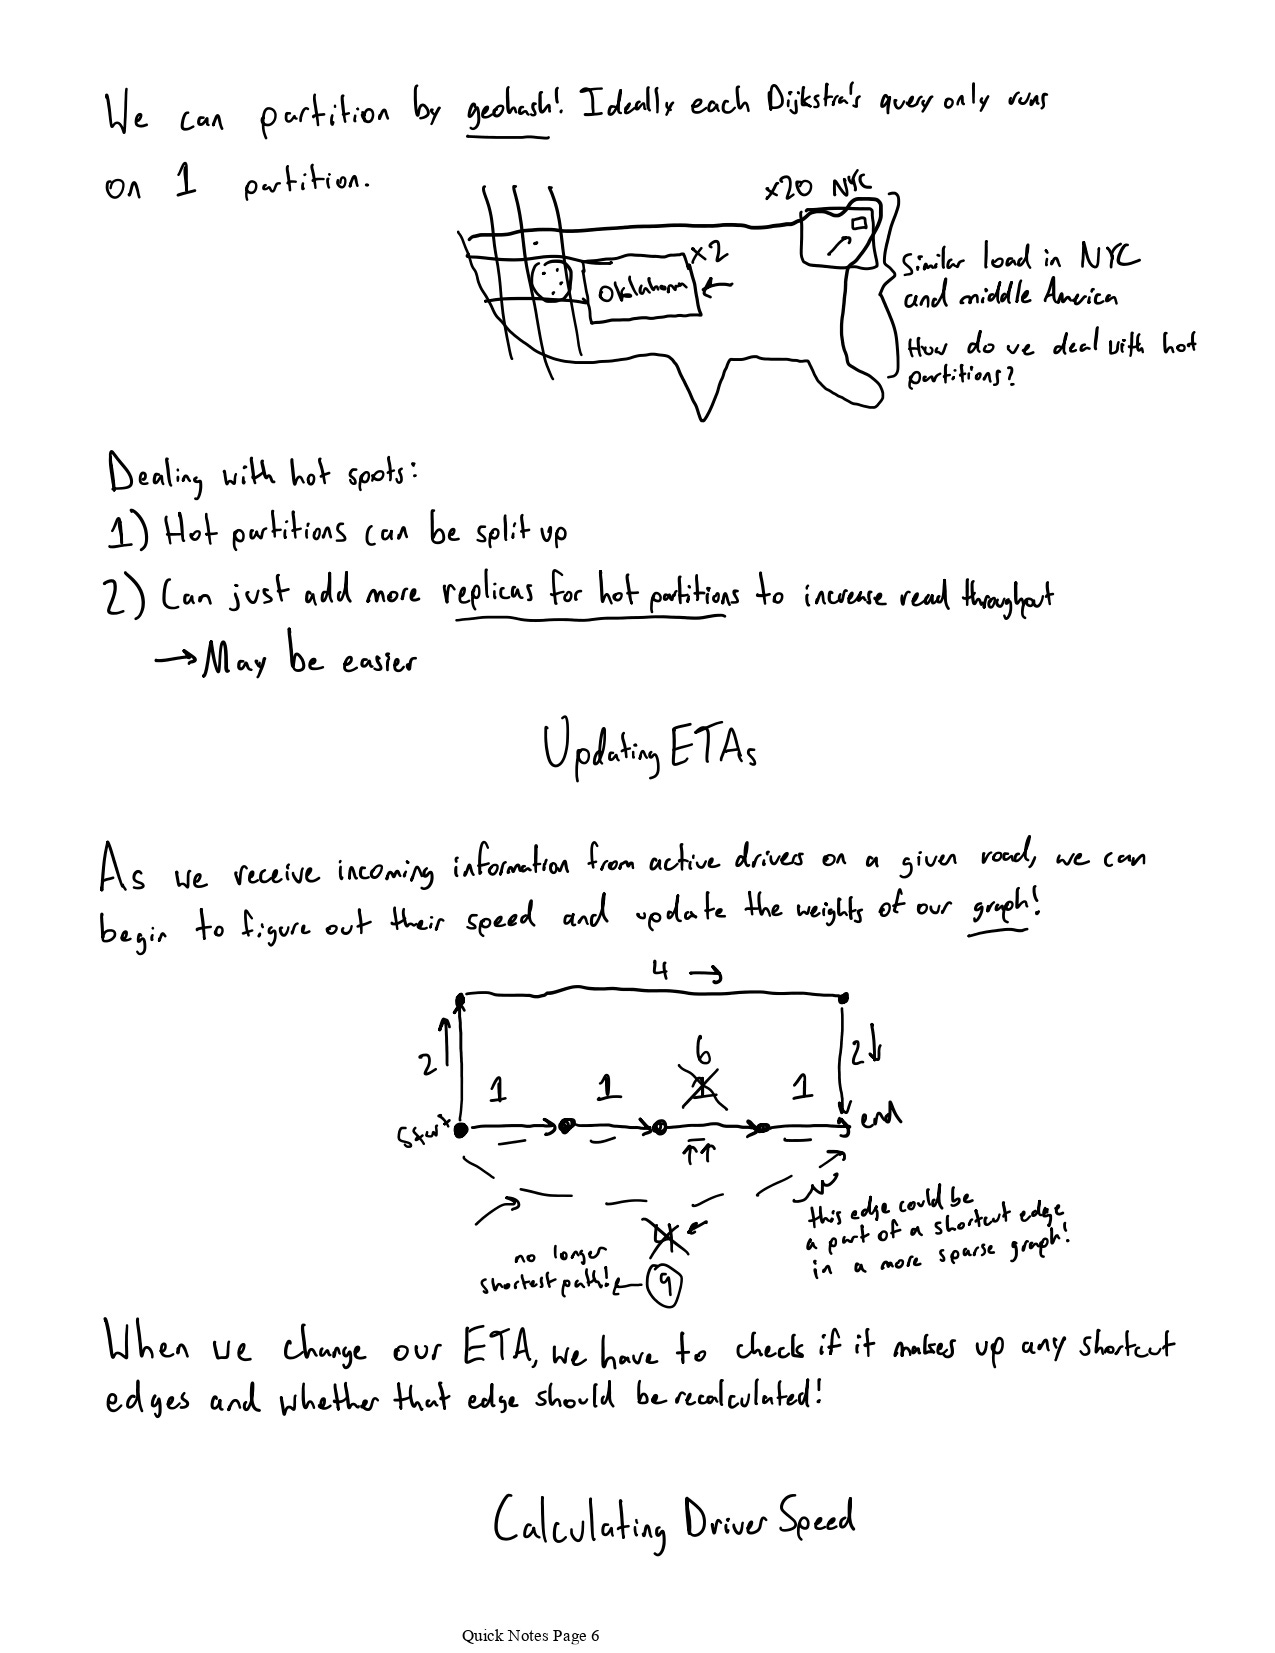 We can partition by geohash! Ideally each Dijkstra's query only runs
on 1 partition.
x20 NYC
x2
Oklahoma
Similar load in NYC
and middle America
How do we deal with hot
partitions?
Dealing with hot spots:
1) Hot partitions can be split up
2) Can just add more replicas for hot partitions to increase read throughput
→ May be easier
Updating ETAs
As we receive incoming information from active drivers on a given road, we can
begin to figure out their speed and update the weights of our graph!
4 →
2
6
2
1 1 1 1
Start
end
this edge could be
a part of a shortcut edge
in a more sparse graph!
4
no longer
shortest path! ← 9
When we change our ETA, we have to check if it makes up any shortcut
edges and whether that edge should be recalculated!
Calculating Driver Speed
Quick Notes Page 6